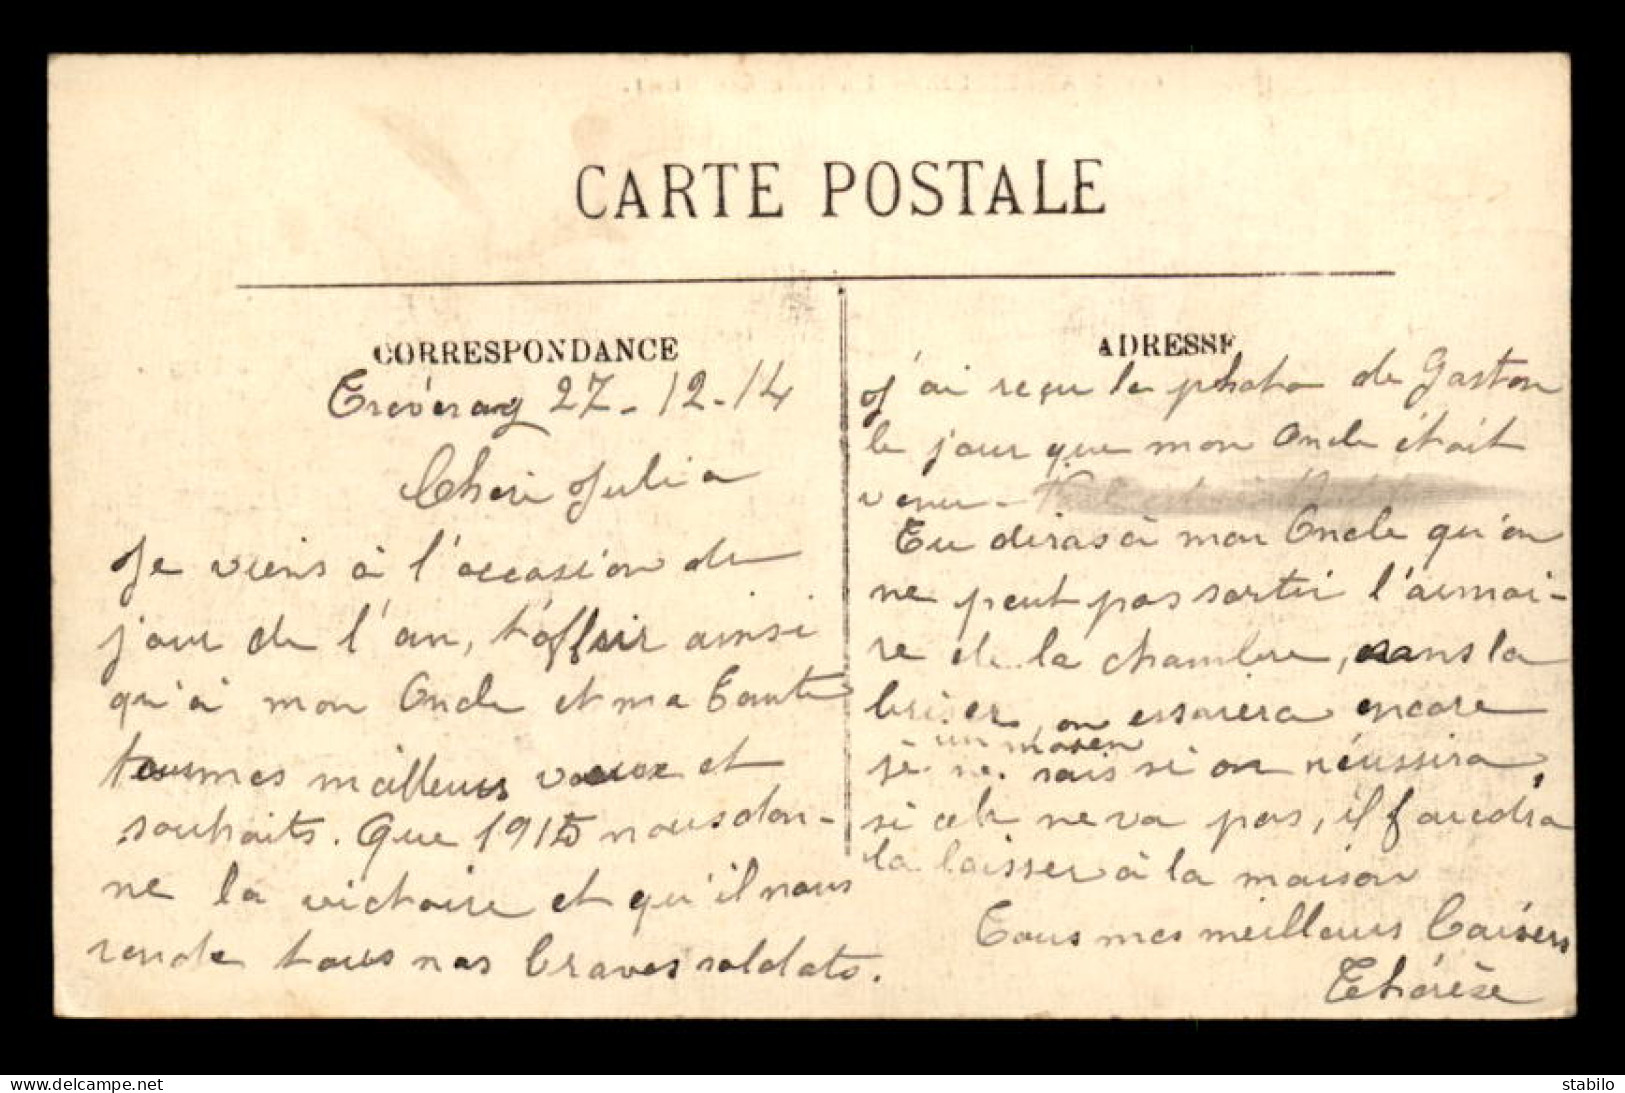 CARTE POSTALE
CORRESPONDANCE
Tréveray 27-12-14
Cheri Julia
Je viens à l'occasion du
jour de l'an, t'offrir ainsi
qu'à mon Oncle et ma Tante
tous mes meilleurs voeux et
souhaits. Que 1915 nous don-
ne la victoire et qu'il nous
rende tous nos braves soldats.
ADRESSE
J'ai reçu la photo de Gaston
le jour que mon Oncle était
venu -
Tu diras à mon Oncle qu'on
ne peut pas sortir l'armoi-
re de la chambre, sans la
briser, on essaiera encore
un moyen
je ne sais si on réussira,
si cela ne va pas, il faudra
la laisser à la maison
Tous mes meilleurs baisers
Thérèse
stabilo
www.delcampe.net